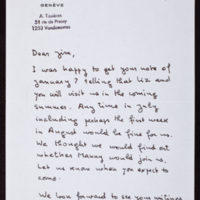 GENÈVE
A. Tissières
31 rte de Pressy
1253 Vandoeuvres
Dear Jim,
I was happy to get your note of
January 7 telling that Liz and
you will visit us in the coming
summer. Any time in July
including perhaps the first week
in August would be fine for us.
We thought we would find out
whether would join us.
Let us know when you expect to
come.
We look forward to see your writings